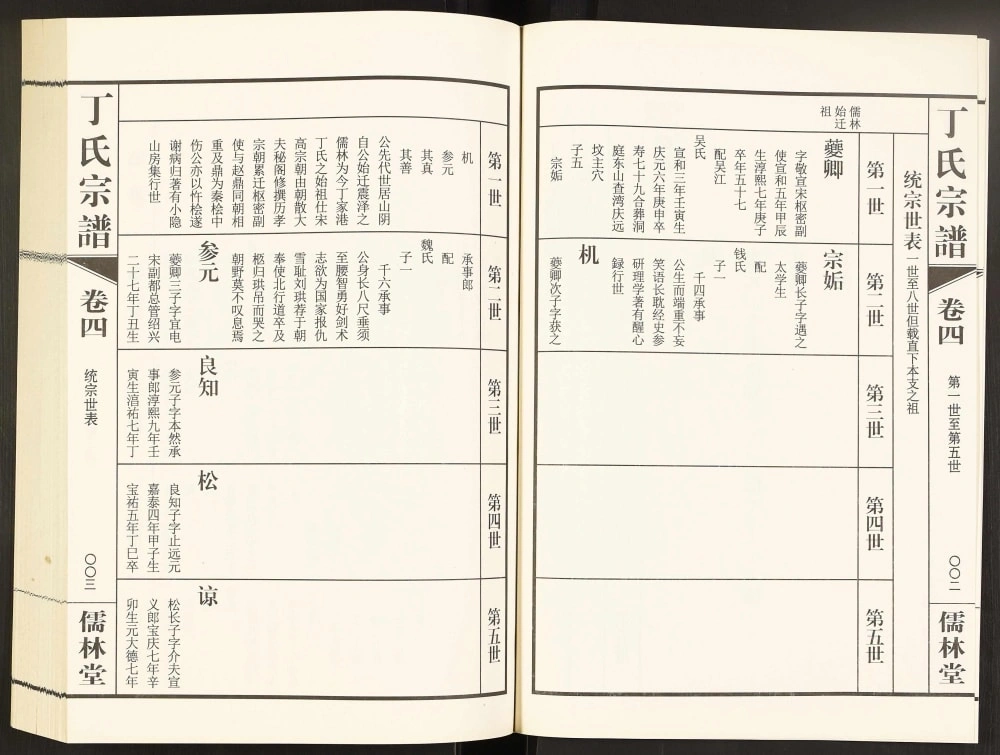 丁氏宗譜
卷四
第一世至第五世
〇〇二
儒林堂
统宗世表一世至八世但载直下本支之祖
第一世
第二世
第三世
第四世
第五世
儒林
始迁
祖
夔卿
字敬宣宋枢密副
使宣和五年甲辰
生淳熙七年庚子
卒年五十七
配吴江
吴氏
宣和三年壬寅生
庆元六年庚申卒
寿七十九合葬洞
庭东山查湾庆远
坟主穴
子五
宗姤
宗姤
夔卿长子字遇之
太学生
配
钱氏
子一
千四承事
公生而端重不妄
笑语长耽经史参
研理学著有醒心
録行世
机
夔卿次子字获之
第一世
第二世
第三世
第四世
第五世
机
参元
其真
其善
公先代世居山阴
自公始迁震泽之
儒林为今丁家港
丁氏之始祖仕宋
高宗朝由朝散大
夫秘阁修撰历孝
宗朝累迁枢密副
使与赵鼎同朝相
重及鼎为秦桧中
伤公亦以忤桧遂
谢病归著有小隐
山房集行世
承事郎
配
魏氏
子一
千六承事
公身长八尺垂须
至腰智勇好剑术
志欲为国家报仇
雪耻刘珙荐于朝
奉使北行道卒及
柩归珙吊而哭之
朝野莫不叹息焉
参元
夔卿三子字宜电
宋副都总管绍兴
二十七年丁丑生
良知
参元子字本然承
事郎淳熙九年壬
寅生淯祐七年丁
松
良知子字止远元
嘉泰四年甲子生
宝祐五年丁巳卒
谅
松长子字介夫宣
义郎宝庆七年辛
卯生元大德七年
丁氏宗譜
卷四
统宗世表
〇〇三
儒林堂